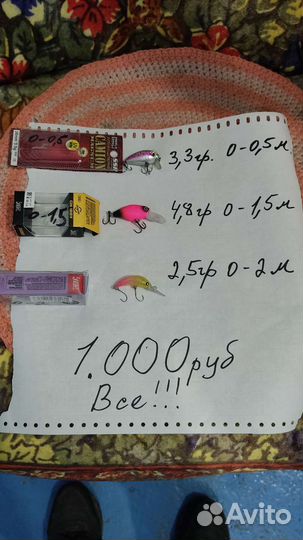 0-0,5
CAMION
3,3гр. 0-0,5м
0-1,5
4,8гр 0-1,5м
2,5гр 0-2м
1.000руб
Все!!!
Avito